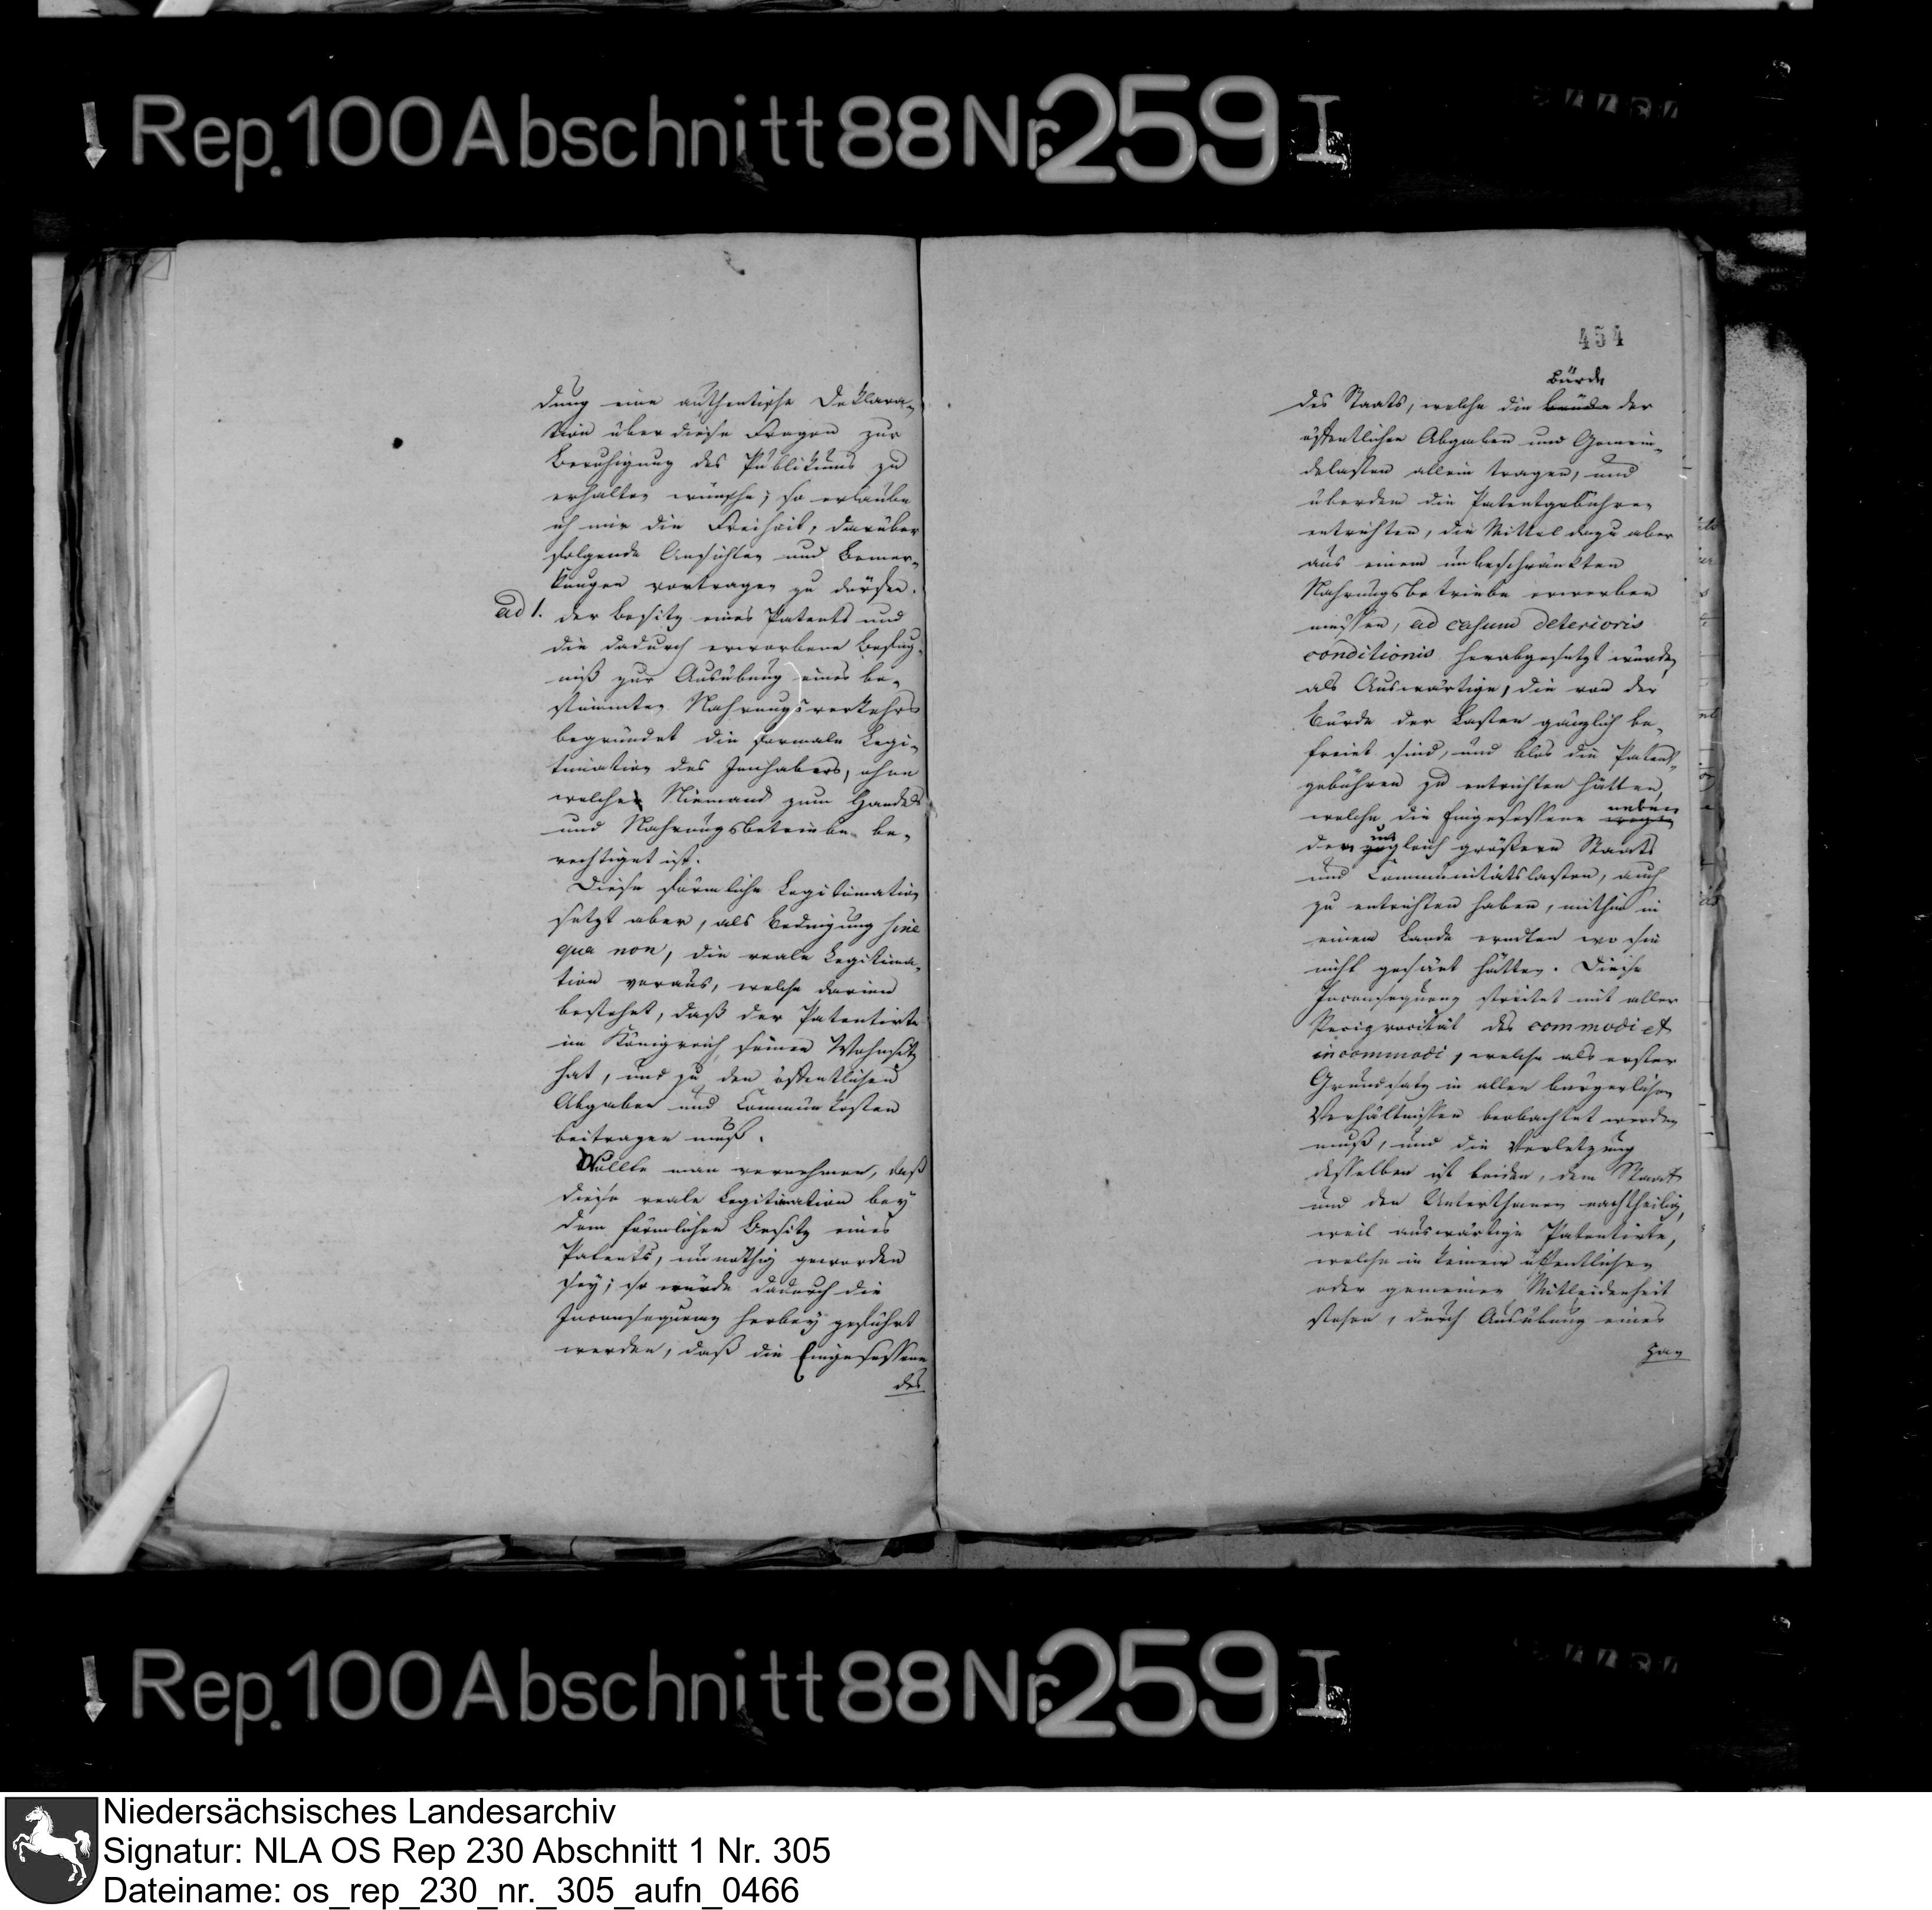 Rep. 100 Abschnitt 88 Nr. 259 I
dung eine authentische Deklara-
tion über diese Fragen zur
Beruhigung des Publikums zu
erhalten wünsche; so erlaube
ich mir die Freiheit, darüber
folgende Ansichten und Bemer-
kungen vortragen zu dürfen.
ad 1. der Besitz eines Patents und
die dadurch erworbene Befug-
niß zur Ausübung eines be-
stimmten Nahrungsverkehrs
begründet die formale Legi-
timation des Innhabers, ohne
welche Niemand zum Handels
und Nahrungsbetriebe be-
rechtiget ist.
Diese förmliche Legitimation
setzt aber, als Bedingung sine
qua non, die reale Legitima-
tion voraus, welche darinn
bestehet, daß der Patentirte
im Königreich seinen Wohnsitz
hat, und zu den öffentlichen
Abgaben und Communkosten
beitragen muß.
Wollte man vernehmen, daß
diese reale Legitimation bey
dem förmlichen Besitz eines
Patents, unnöthig geworden
sey; so würde dadurch die
Inconsequenz herbey geführt
werden, daß die Eingesessene
des
454
Bürde
des Staats, welche die Bürde der
öffentlichen Abgaben und Gemein-
delasten allein tragen, und
überdem die Patentgebühren
entrichten, die Mittel dazu aber
aus einem unbeschränkten
Nahrungsbetriebe erwerben
müssen, ad casum deterioris
conditionis herabgesetzt würden,
als Auswärtige, die von der
Bürde der Lasten gänzlich be-
freiet sind, und blos die Patent-
gebühren zu entrichten hätten,
neben
welche die Eingesessene wegen
un
der zugleich größern Staats
und Communitätslasten, auch
zu entrichten haben, mithin in
einem Lande erndten wo sie
nicht gesäet hätten. Diese
Inconsequenz streitet mit aller
Reciprocität des commodi et
incommodi, welche als erster
Grundsatz in allen bürgerlichen
Verhältnissen beobachtet werden
muß, und die Verletzung
desselben ist beiden, dem Staat
und den Unterthanen nachtheilig,
weil auswärtige Patentirte,
welche in keiner öffentlichen
oder gemeinen Mitleidenheit
stehen, durch Ausübung eines
Rep. 100 Abschnitt 88 Nr. 259 I
Niedersächsisches Landesarchiv
Signatur: NLA OS Rep 230 Abschnitt 1 Nr. 305
Dateiname: os_rep_230_nr._305_aufn_0466